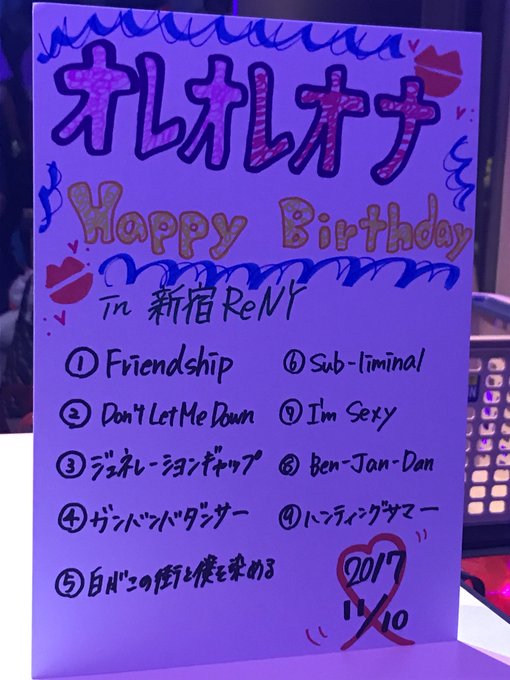 オレオレオナ
Happy Birthday
in 新宿ReNY
① Friendship
② Don't Let Me Down
③ ジェネレーションギャップ
④ ガンバンバダンサー
⑤ 白がこの街と僕を染める
⑥ Sub-liminal
⑦ I'm Sexy
⑧ Ben-Jan-Dan
⑨ ハンティングサマー
2017
11/10